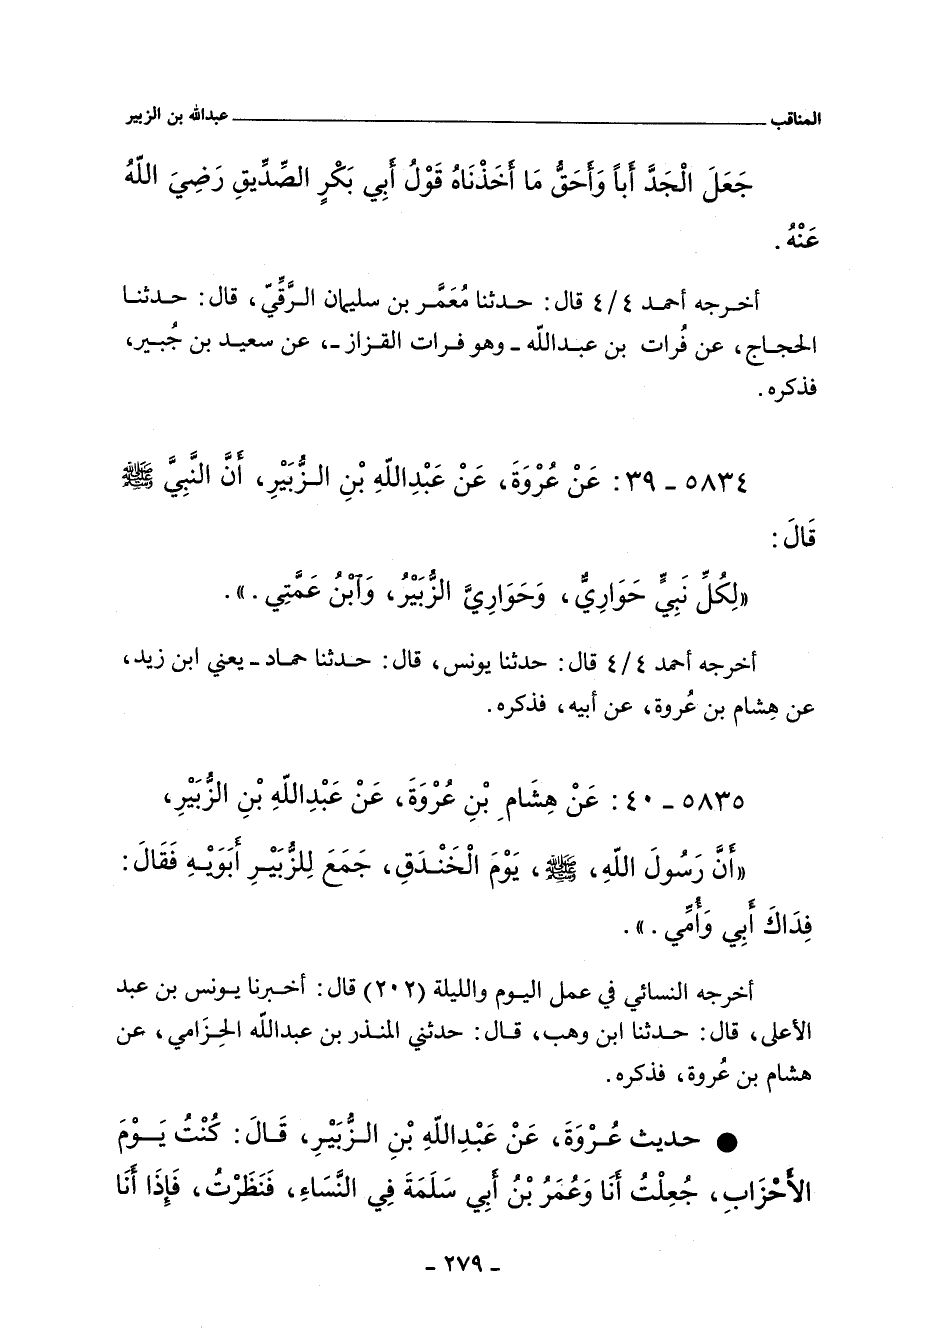 المناقب ــــــــــ عبدالله بن الزبير
جَعَلَ الْجَدَّ أَباً وَأَحَقُّ مَا أَخَذْنَاهُ قَوْلُ أَبِي بَكْرٍ الصِّدِّيقِ رَضِيَ اللَّهُ
عَنْهُ .
أخرجه أحمد ٤/٤ قال: حدثنا مُعَمَّر بن سليمان الرَّقِّيّ، قال: حدثنا
الحجاج، عن فُرات بن عبدالله ـ وهو فرات القزاز ـ، عن سعيد بن جُبير،
فذكره.
٥٨٣٤ ـ ٣٩: عَنْ عُرْوَةَ، عَنْ عَبْدِاللّهِ بْنِ الزُّبَيْرِ، أَنَّ النَّبِيَّ ﷺ
قَالَ:
«لِكُلِّ نَبِيٍّ حَوَارِيٌّ، وَحَوَارِيَّ الزُّبَيْرُ، وَآبْنُ عَمَّتِي.».
أخرجه أحمد ٤/٤ قال: حدثنا يونس، قال: حدثنا حماد ـ يعني ابن زيد،
عن هِشام بن عُروة، عن أبيه، فذكره.
٥٨٣٥ ـ ٤٠: عَنْ هِشَامِ بْنِ عُرْوَةَ، عَنْ عَبْدِاللّهِ بْنِ الزُّبَيْرِ،
«أَنَّ رَسُولَ اللّهِ، ﷺ، يَوْمَ الْخَنْدَقِ، جَمَعَ لِلزُّبَيْرِ أَبَوَيْهِ فَقَالَ:
فِدَاكَ أَبِي وَأُمِّي.».
أخرجه النسائي في عمل اليوم والليلة (٢٠٢) قال: أخبرنا يونس بن عبد
الأعلى، قال: حدثنا ابن وهب، قال: حدثني المنذر بن عبدالله الحِزَامي، عن
هشام بن عُروة، فذكره.
● حديث عُرْوَةَ، عَنْ عَبْدِاللّهِ بْنِ الزُّبَيْرِ، قَالَ: كُنْتُ يَوْمَ
الأَحْزَابِ، جُعِلْتُ أَنَا وَعُمَرُ بْنُ أَبِي سَلَمَةَ فِي النَّسَاءِ، فَنَظَرْتُ، فَإِذَا أَنَا
ـ ٢٧٩ ـ